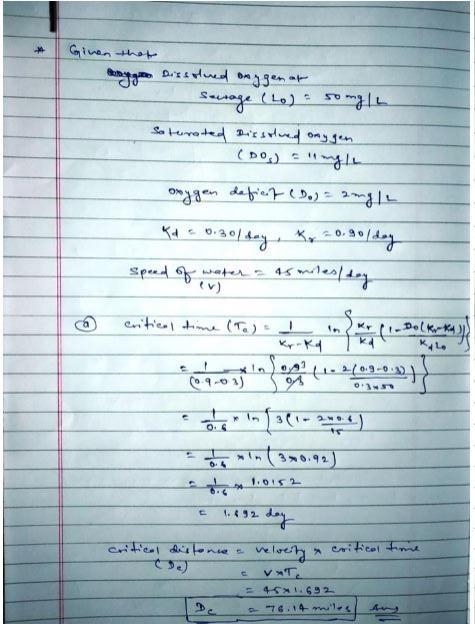 * Given that
Dissolved oxygen at
Sewage (L0) = 50 mg/L
Saturated Dissolved oxygen
(DOs) = 11 mg/L
oxygen deficit (D0) = 2 mg/L
Kd = 0.30/day, Kr = 0.90/day
Speed of water = 45 miles/day
(V)
(a) critical time (Tc) = 1/(Kr-Kd) ln {Kr/Kd (1 - D0(Kr-Kd)/(Kd L0))}
= 1/(0.9-0.3) × ln {0.9/0.3 (1 - 2(0.9-0.3)/(0.3×50))}
= 1/0.6 × ln {3(1 - 2×0.6/15)
= 1/0.6 × ln (3×0.92)
= 1/0.6 × 1.0152
= 1.692 day
critical distance = velocity × critical time
(Dc)
= V×Tc
= 45×1.692
Dc = 76.14 miles Ans